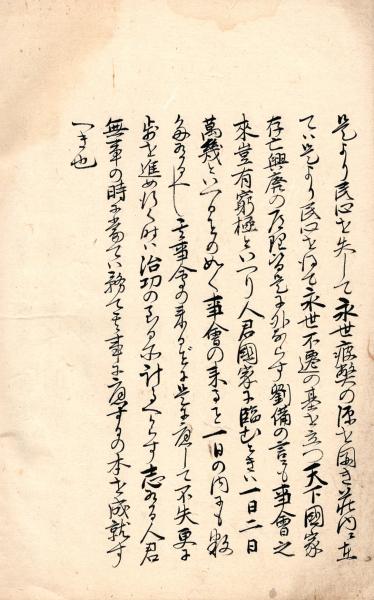 是より民心を失して永世疲弊の源を開き荘内に在
ては是より民心を得て永世不遷の基を立つ天下国家
存亡興廃の道理皆是に外ならす劉備の言も事會之
來豈有窮極といつり人君國家に臨むときハ一日二日
萬幾といへることの如く事會の来ること一日の内にも数
多あるへし其事會の来るたひに是に應して不失更に
歩を進め行く時ハ治功の至る所計るへからす志ある人君
無事の時に當てハ務て其事に應するの本を成就す
へき也